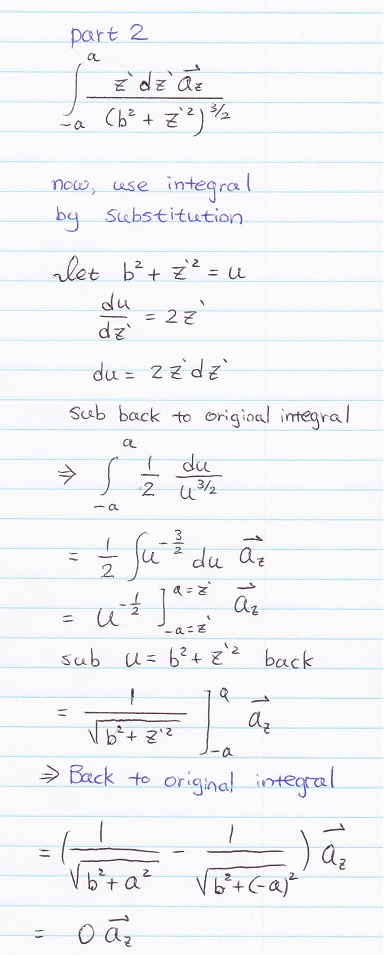 part 2
∫_{-a}^{a} z` dz` a⃗z / (b² + z`²)^{3/2}
now, use integral
by substitution
let b² + z`² = u
du/dz` = 2z`
du = 2z`dz`
sub back to original integral
⇒ ∫_{-a}^{a} 1/2 du/u^{3/2}
= 1/2 ∫u^{-3/2} du a⃗z
= u^{-1/2} ]_{-a=z`}^{a=z`} a⃗z
sub u = b² + z`² back
= 1/√(b² + z'²) ]_{-a}^{a} a⃗z
⇒ Back to original integral
= (1/√(b²+a²) − 1/√(b²+(-a)²)) a⃗z
= 0 a⃗z